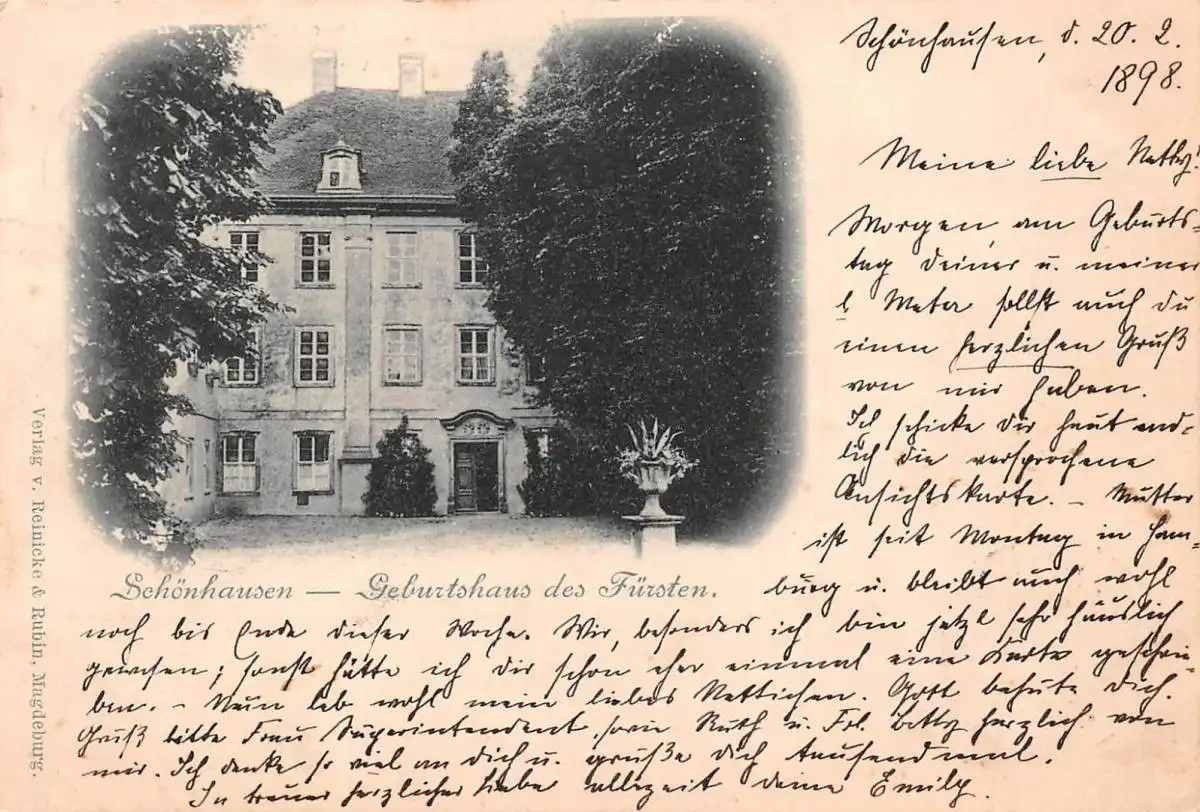 Schönhausen, d. 20. 2.
1898.
Meine liebe Netty!
Morgen, am Geburts-
tag deiner u. meiner
l. Meta sollst auch du
einen herzlichen Gruß
von mir haben.
Ich schicke dir heut end-
lich die versprochene
Ansichtskarte. – Mutter
ist seit Montag in Ham-
burg u. bleibt auch wohl
noch bis Ende dieser Woche. Wir, besonders ich bin jetzt sehr häuslich
gewesen; sonst hätte ich dir schon eher einmal eine Karte geschrie-
ben. – Nun leb wohl mein liebes Nettichen. Gott behüte dich.
Gruß bitte Frau Superintendent, sowie Ruth u. Frl. Betty herzlich von
mir. Ich denke so viel an dich u. grüße dich tausendmal.
In treuer herzlicher Liebe allezeit deine Emily.
Schönhausen — Geburtshaus des Fürsten.
Verlag v. Reinicke & Rubin, Magdeburg.